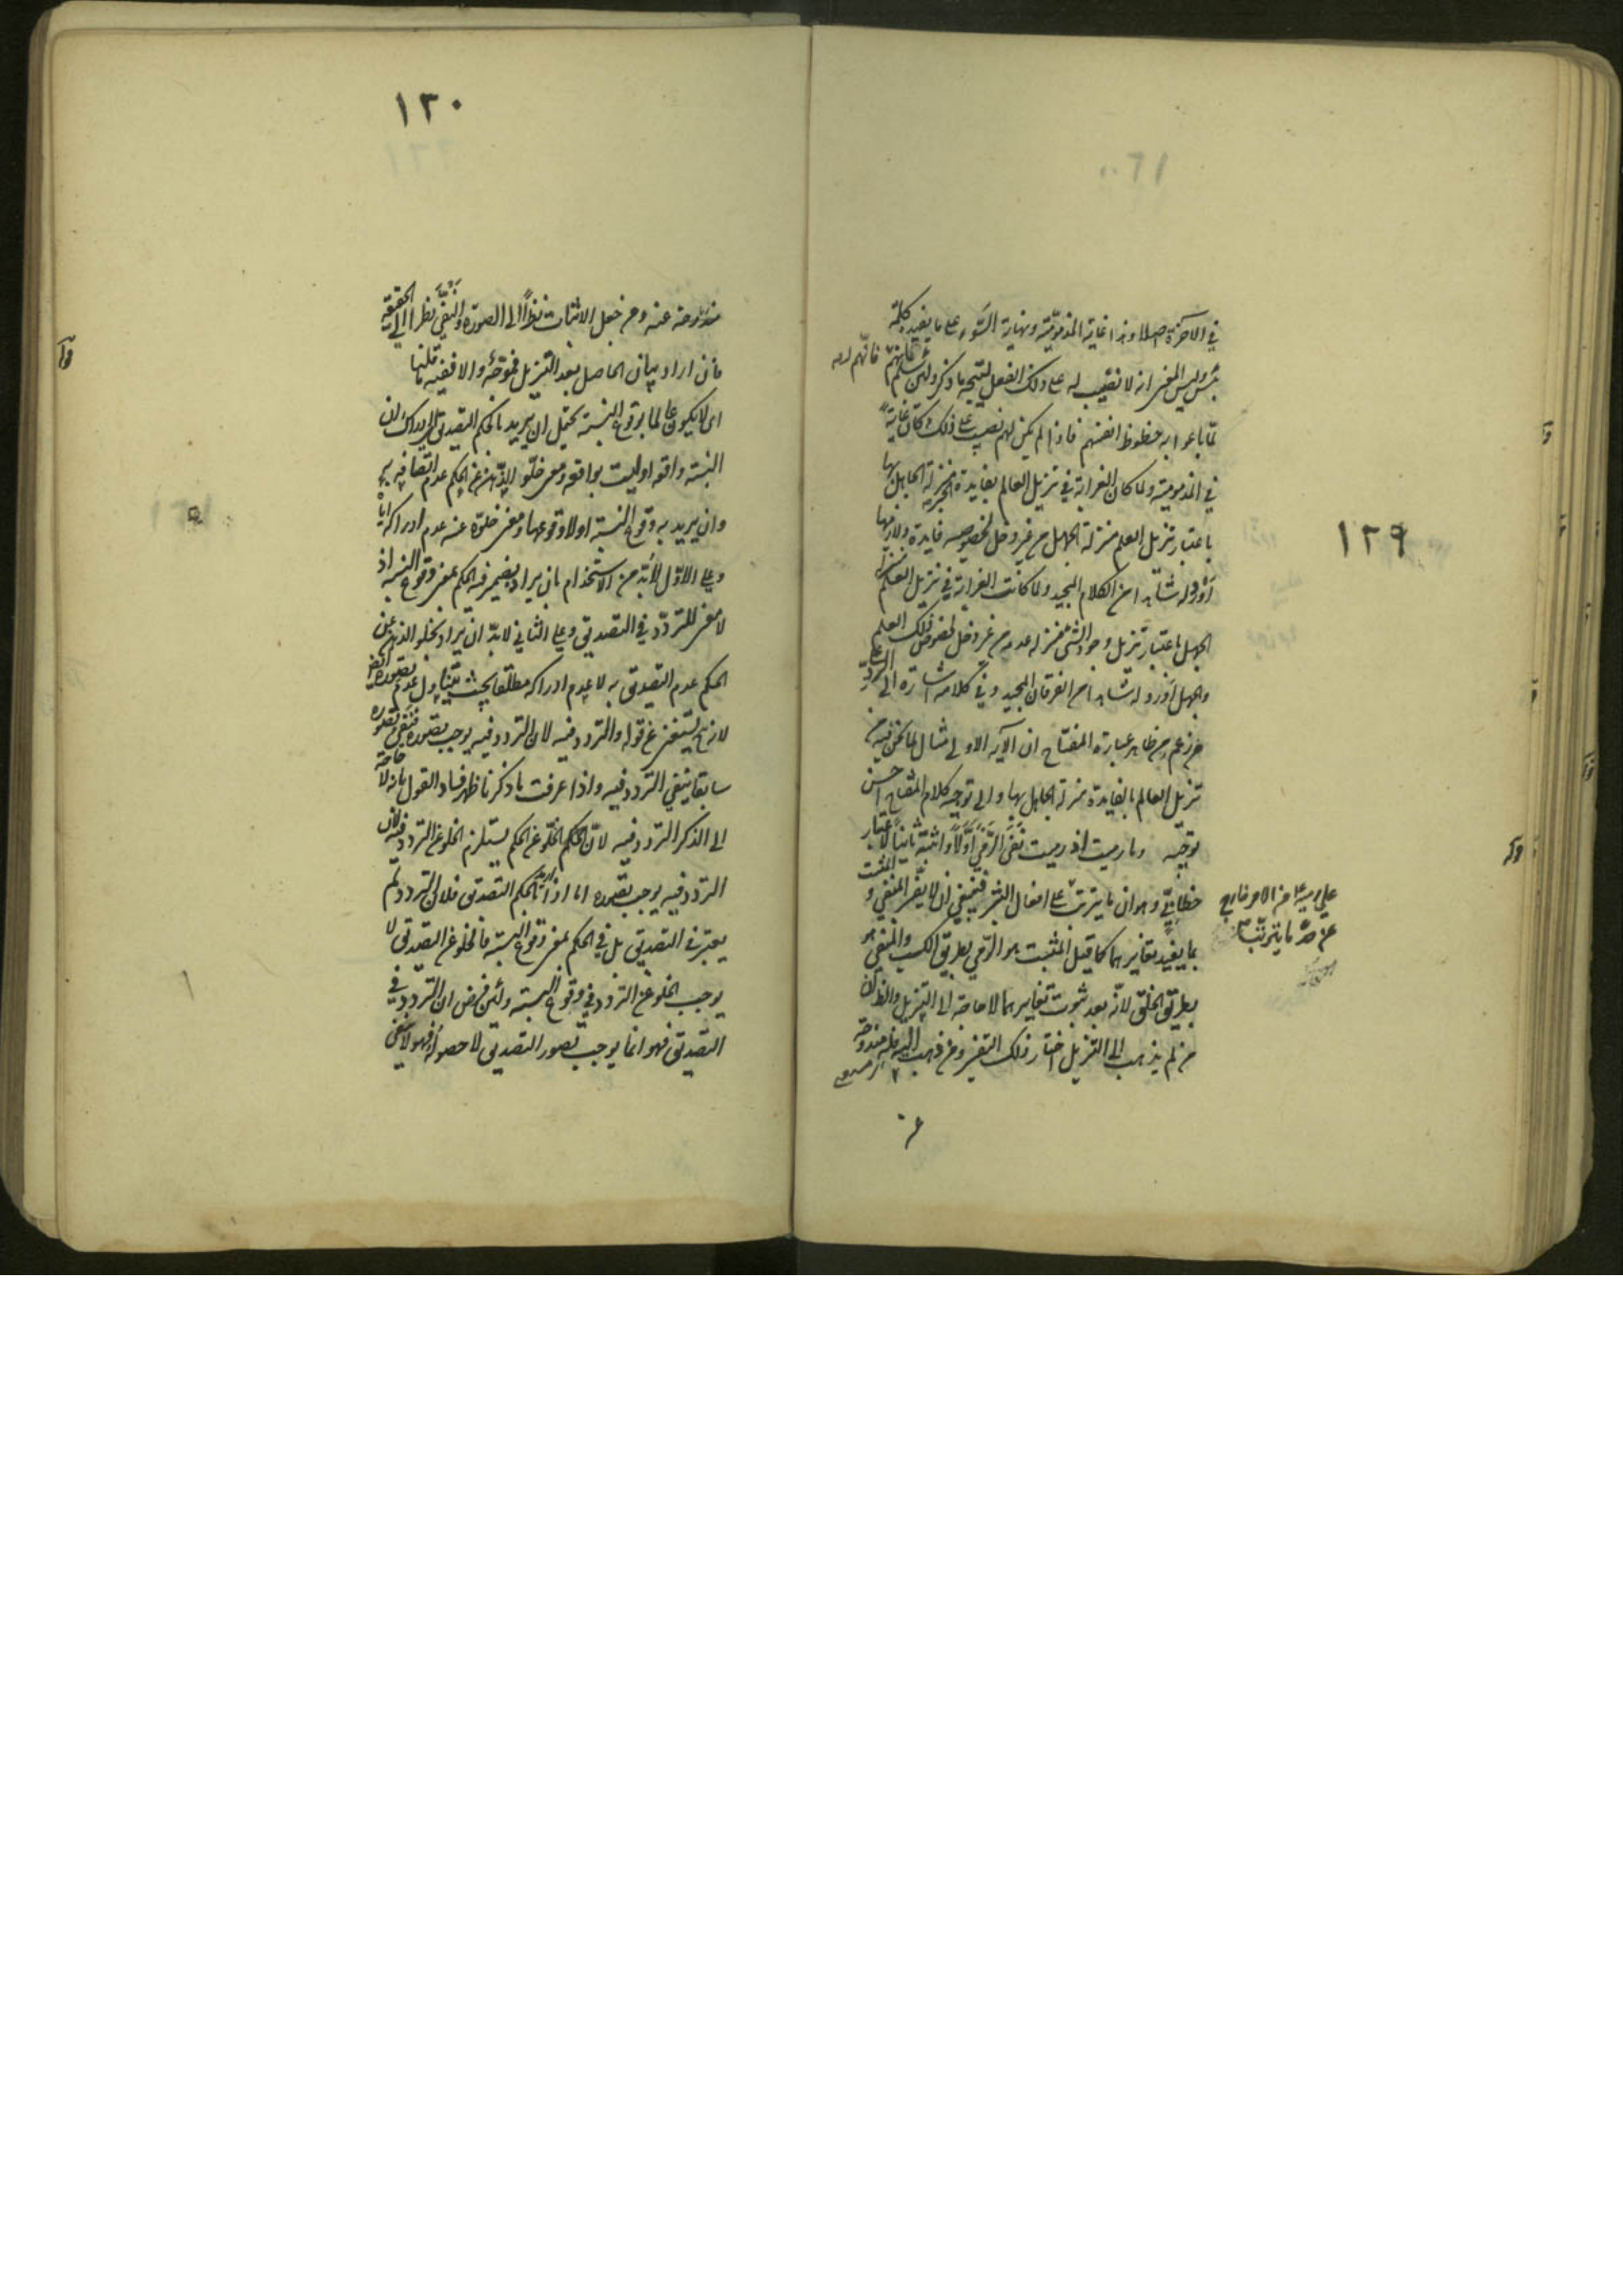 ١٢٩
في الآخرة اصلا وهذا غاية المذمومية ونهاية السوء على ما يفيد كلمة
بئس وليس المعنى انه لا نصيب له على ذلك الفعل ليتجه ما ذكر ولئن سلم فانهم لم
في المذمومية ولما كان الغرابة في تنزيل العالم بفايدة الخبر منزلة الجاهل بها
باعتبار تنزيل العلم منزلة الجهل من غير دخل لخصوصية فايدة ولازمها
اورد له شاهدا من الكلام المجيد ولما كانت الغرابة في تنزيل العلم منزلة
الجهل باعتبار تنزيل وجود الشئ منزلة عدمه من غير دخل لخصوص ذلك العلم
والجهل اورد له شاهدا من الفرقان المجيد وفي كلامه اشارة الى الرد على
من زعم من ظاهر عبارة المفتاح ان الآية الاولى مثال لما نحن فيه من
تنزيل العالم بالفايدة منزلة الجاهل بها والى توجيه كلام المفتاح احسن
توجيه وما رميت اذ رميت نفى الرمي اولا واثبته ثانيا لاعتبار
خطابي وهو ان ما يترتب على افعال البشر فينبغي ان لا يفسر المنفي والمثبت
بما يفيد تغايرهما كما قيل المثبت هو الرمي بطريق الكسب والمنفي هو
بطريق الخلق لانه بعد ثبوت تغايرهما لا حاجة الى التنزيل والظ ان
من لم يذهب الى التنزيل اختار ذلك التفسير ومن ذهب اليه فله مندوحة
١٣٠
مندوحة عنه ومن جعل الاثبات نظرا الى الصورة والنفي نظرا الى الحقيقة
فان اراد بيان الحاصل بعد التنزيل فموجه والا ففيه ما قلنا
اى لا يكون عالما بوقوع النسبة يحتمل ان يريد بالحكم التصديق اى ادراك ان
النسبة واقعة او ليست بواقعة ومعنى خلو الذهن عن الحكم عدم اتصافه به
وان يريد به وقوع النسبة او لا وقوعها ومعنى خلوه عنه عدم ادراكه اياه
وعلى الاول لا بد من الاستخدام بان يراد بضمير فيه الحكم بمعنى وقوع النسبة اذ
لا معنى للتردد في التصديق وعلى الثاني لا بد ان يراد بخلو الذهن عن
الحكم عدم التصديق به لا عدم ادراكه مطلقا بحيث يتناول عدم تصوره ايضا
لانه ح يستغنى عن قوله والتردد فيه لان التردد فيه يوجب تصوره فنفى تصوره
سابقا ينفي التردد فيه واذا عرفت ما ذكرنا ظهر فساد القول بانه لا حاجة
الى الذكر التردد فيه لان الحكم الخلو عن الحكم يستلزم الخلو عن التردد فيه لان
التردد فيه يوجب تصوره اما اذا اريد بالحكم التصديق فلان التردد لم
يعتبر في التصديق بل في الحكم بمعنى وقوع النسبة فالخلو عن التصديق لا
يوجب الخلو عن التردد في وقوع النسبة ولئن فرض ان التردد في
التصديق فهو انما يوجب تصور التصديق لا حصوله فهو لا ينفى